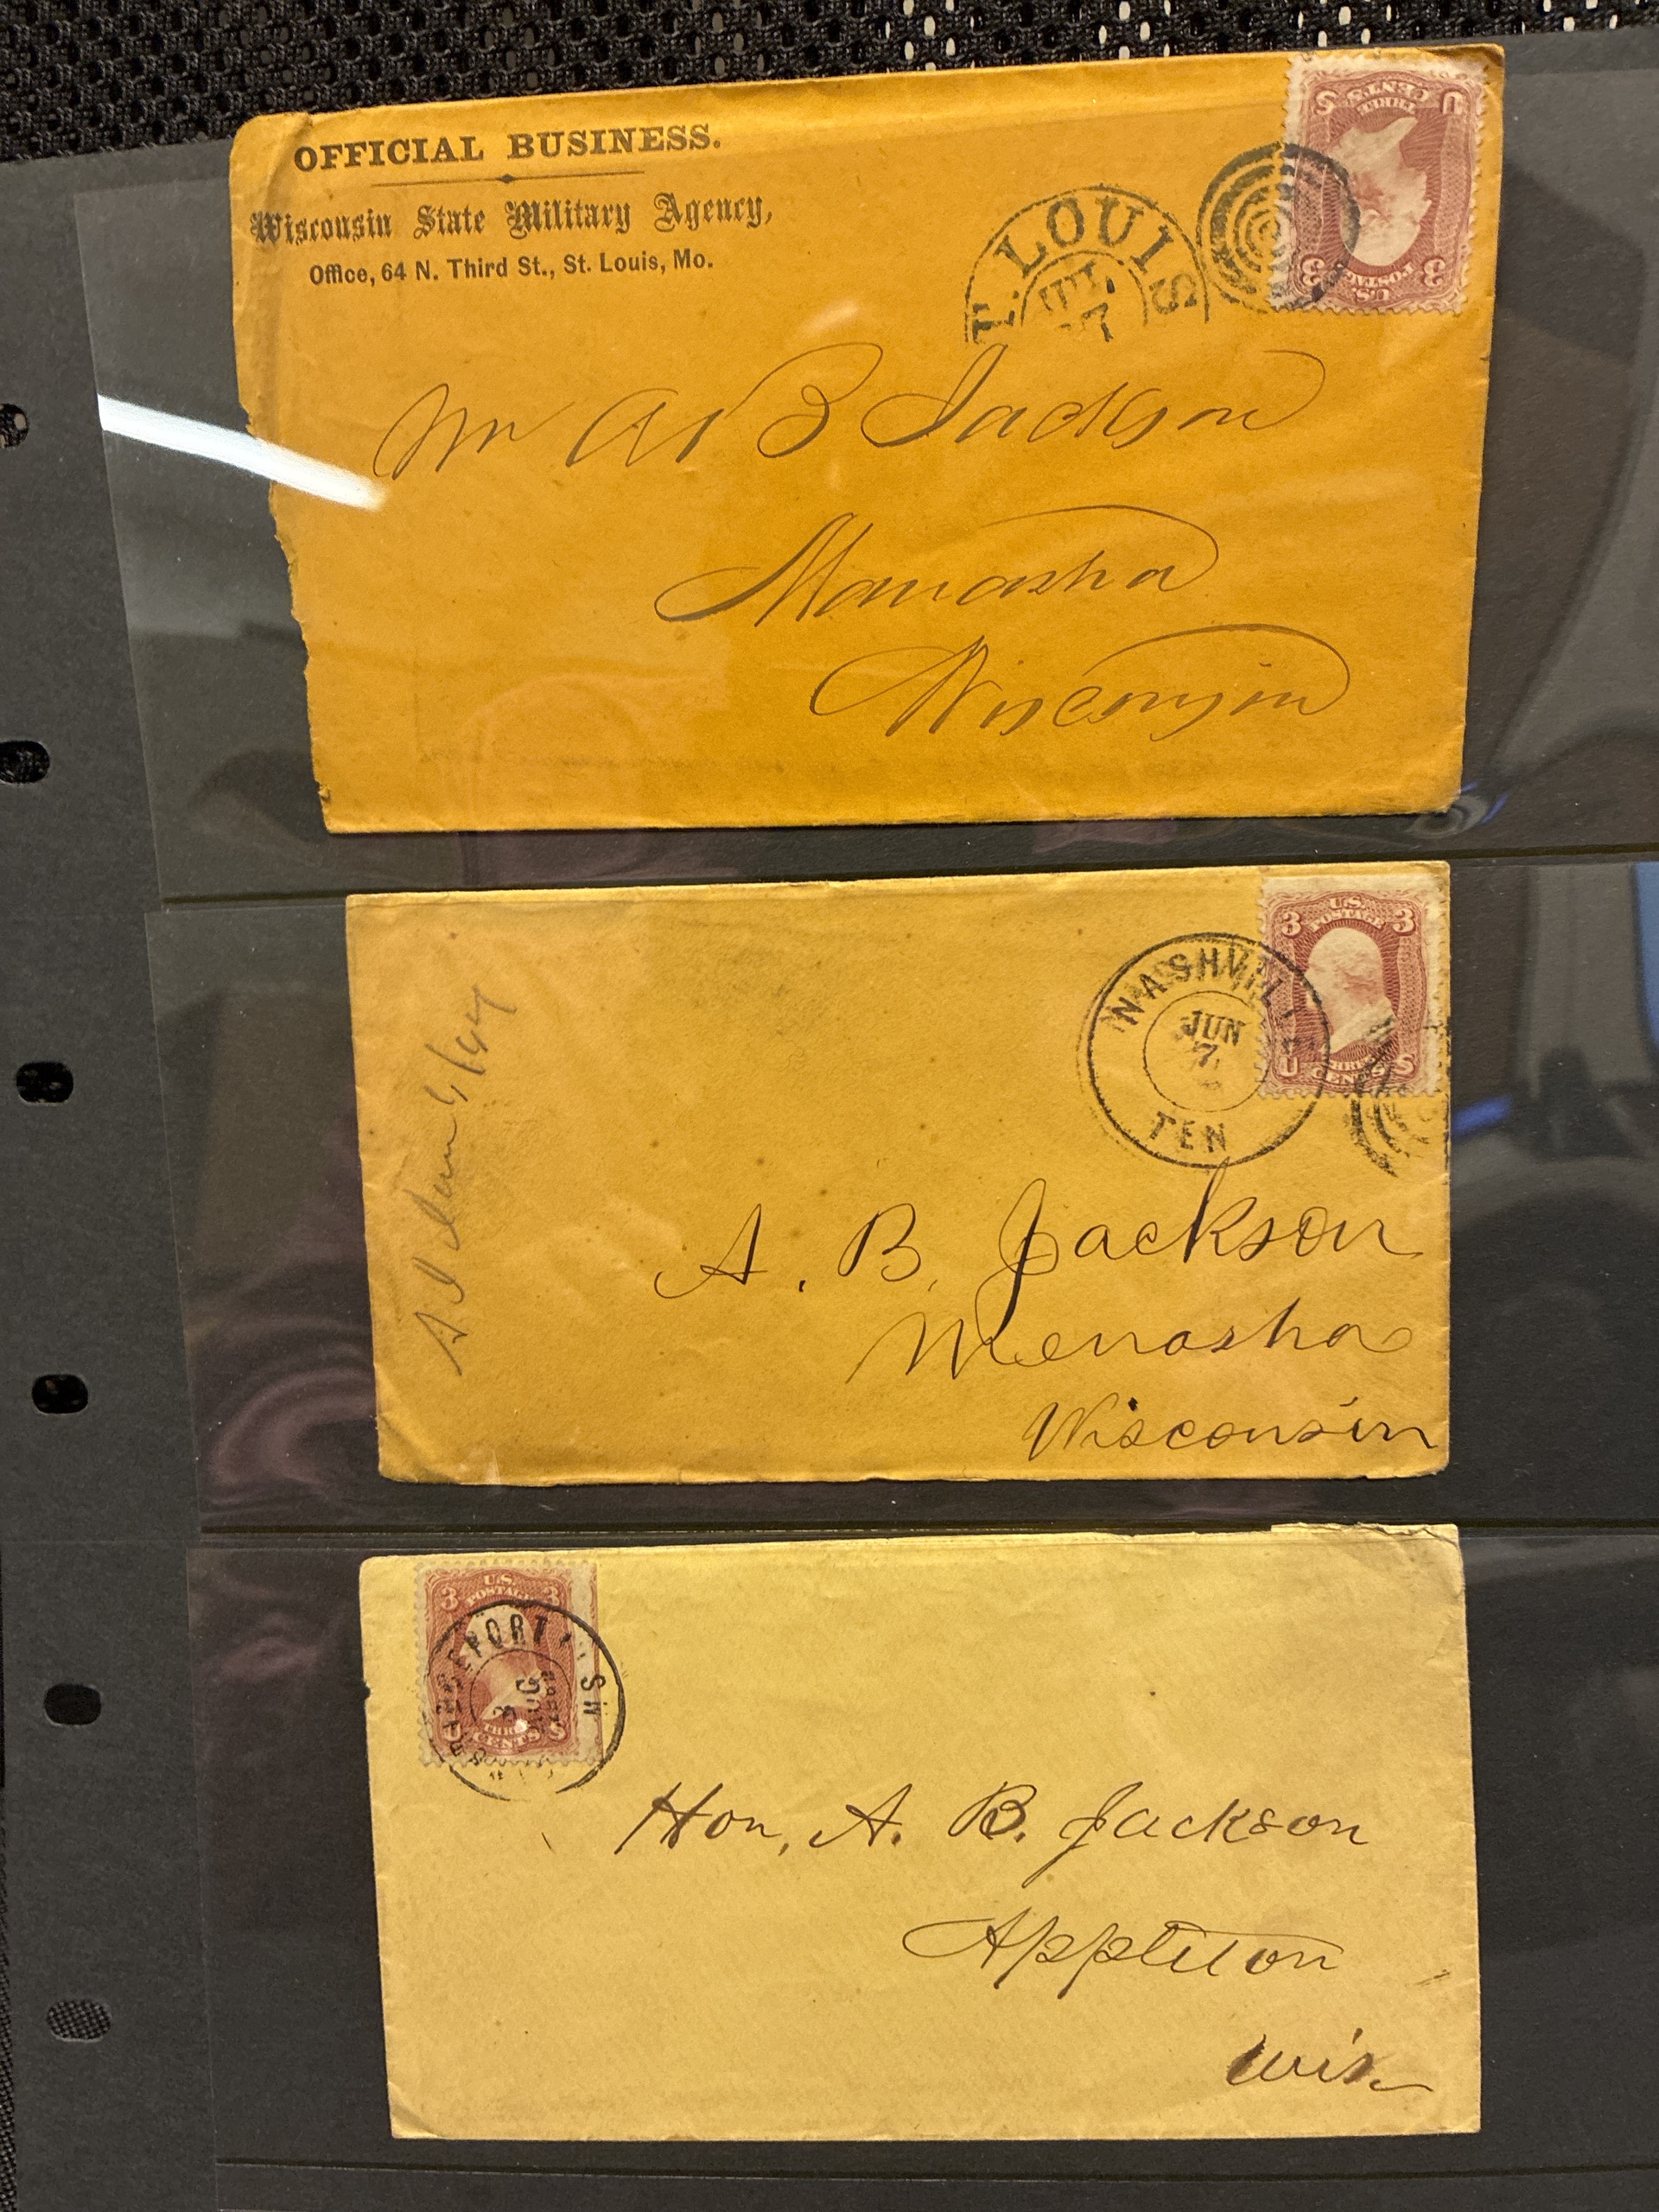 OFFICIAL BUSINESS.
Wisconsin State Military Agency,
Office, 64 N. Third St., St. Louis, Mo.
T. LOUIS
U.S.
POSTAGE
3 3
U S
THREE
CENTS
Mr A B Jackson
Manasha
Wisconsin
NASHVILLE
JUN
7
TEN
U.S.
POSTAGE
3 3
U S
THREE
CENTS
A. B. Jackson
Menasha
Wisconsin
U.S.
POSTAGE
3 3
THREE
CENTS
S
Hon, A. B. Jackson
Appleton
Wis.